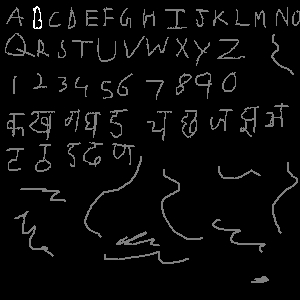 A B C D E F G H I J K L M N O
Q R S T U V W X Y Z
1 2 3 4 5 6 7 8 9 0
क ख ग घ ङ च छ ज झ ञ
ट ठ ड ढ ण